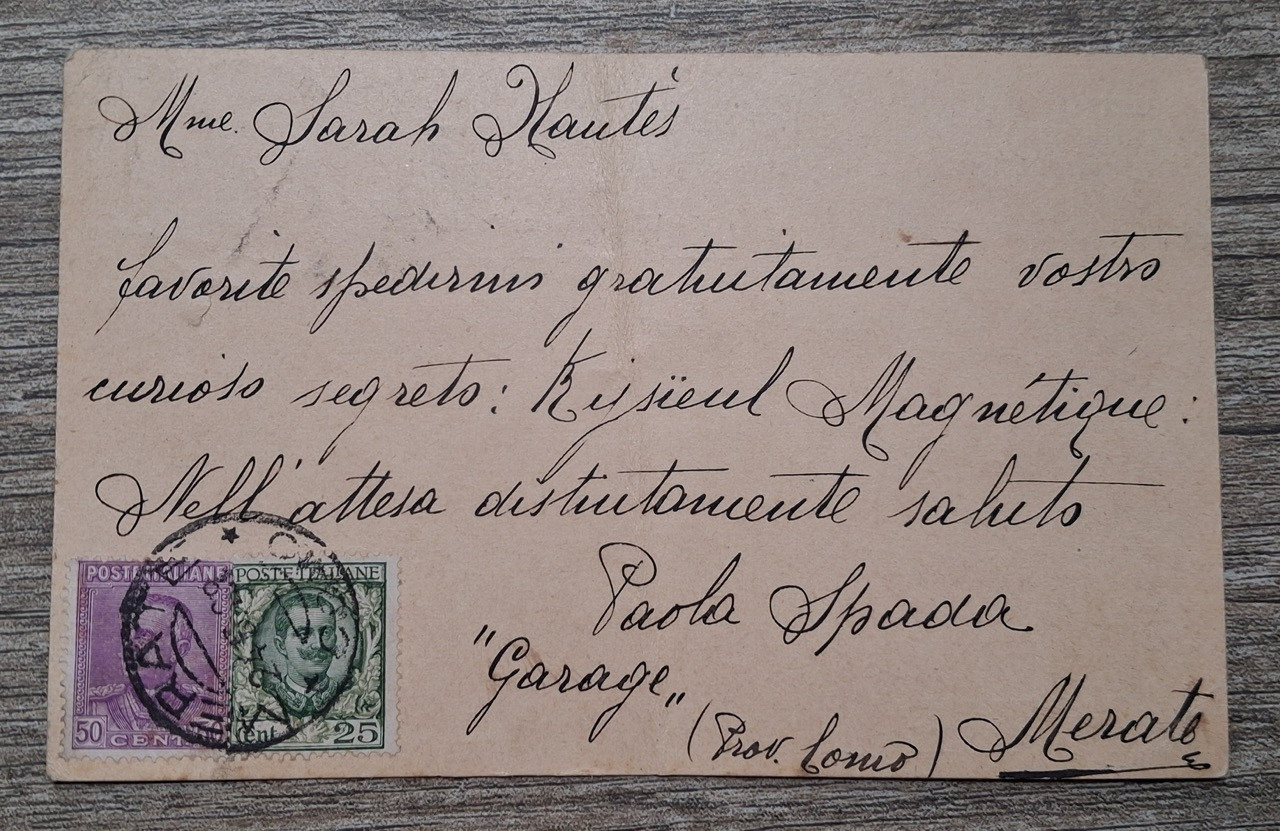 Mme. Sarah Hautès
favorite spedirmi gratuitamente vostro
curioso segreto: Kysïeul Magnétique:
Nell'attesa distintamente saluto
Paola Spada
"Garage„
(Prov. Como) Merate
POSTE ITALIANE
50 CENT
POSTE ITALIANE
Cent. 25